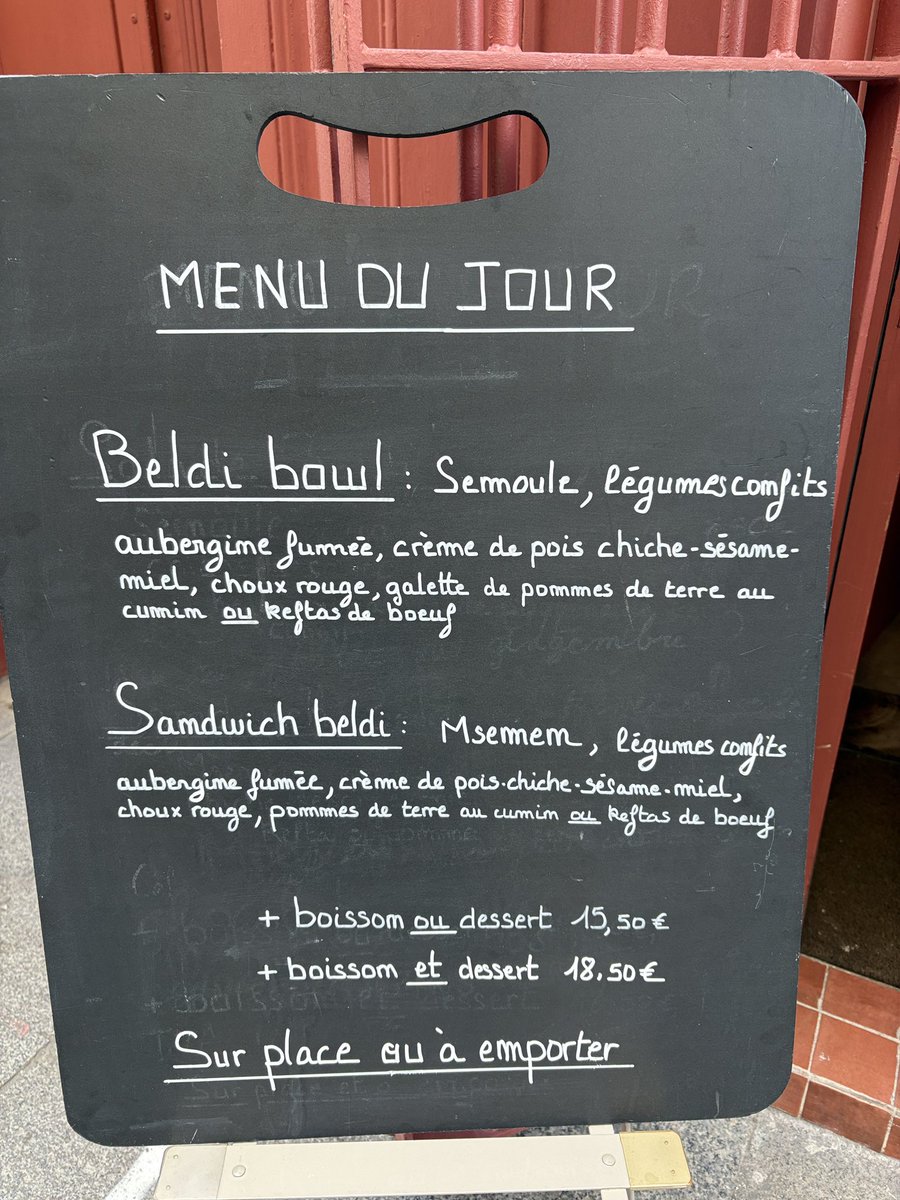 MENU DU JOUR
Beldi bowl : Semoule, légumes confits
aubergine fumée, crème de pois chiche-sésame-
miel, choux rouge, galette de pommes de terre au
cumin ou keftas de boeuf
Sandwich beldi : Msemen, légumes confits
aubergine fumée, crème de pois-chiche-sésame-miel,
choux rouge, pommes de terre au cumin ou keftas de boeuf
+ boisson ou dessert 15,50 €
+ boisson et dessert 18.50 €
Sur place ou à emporter